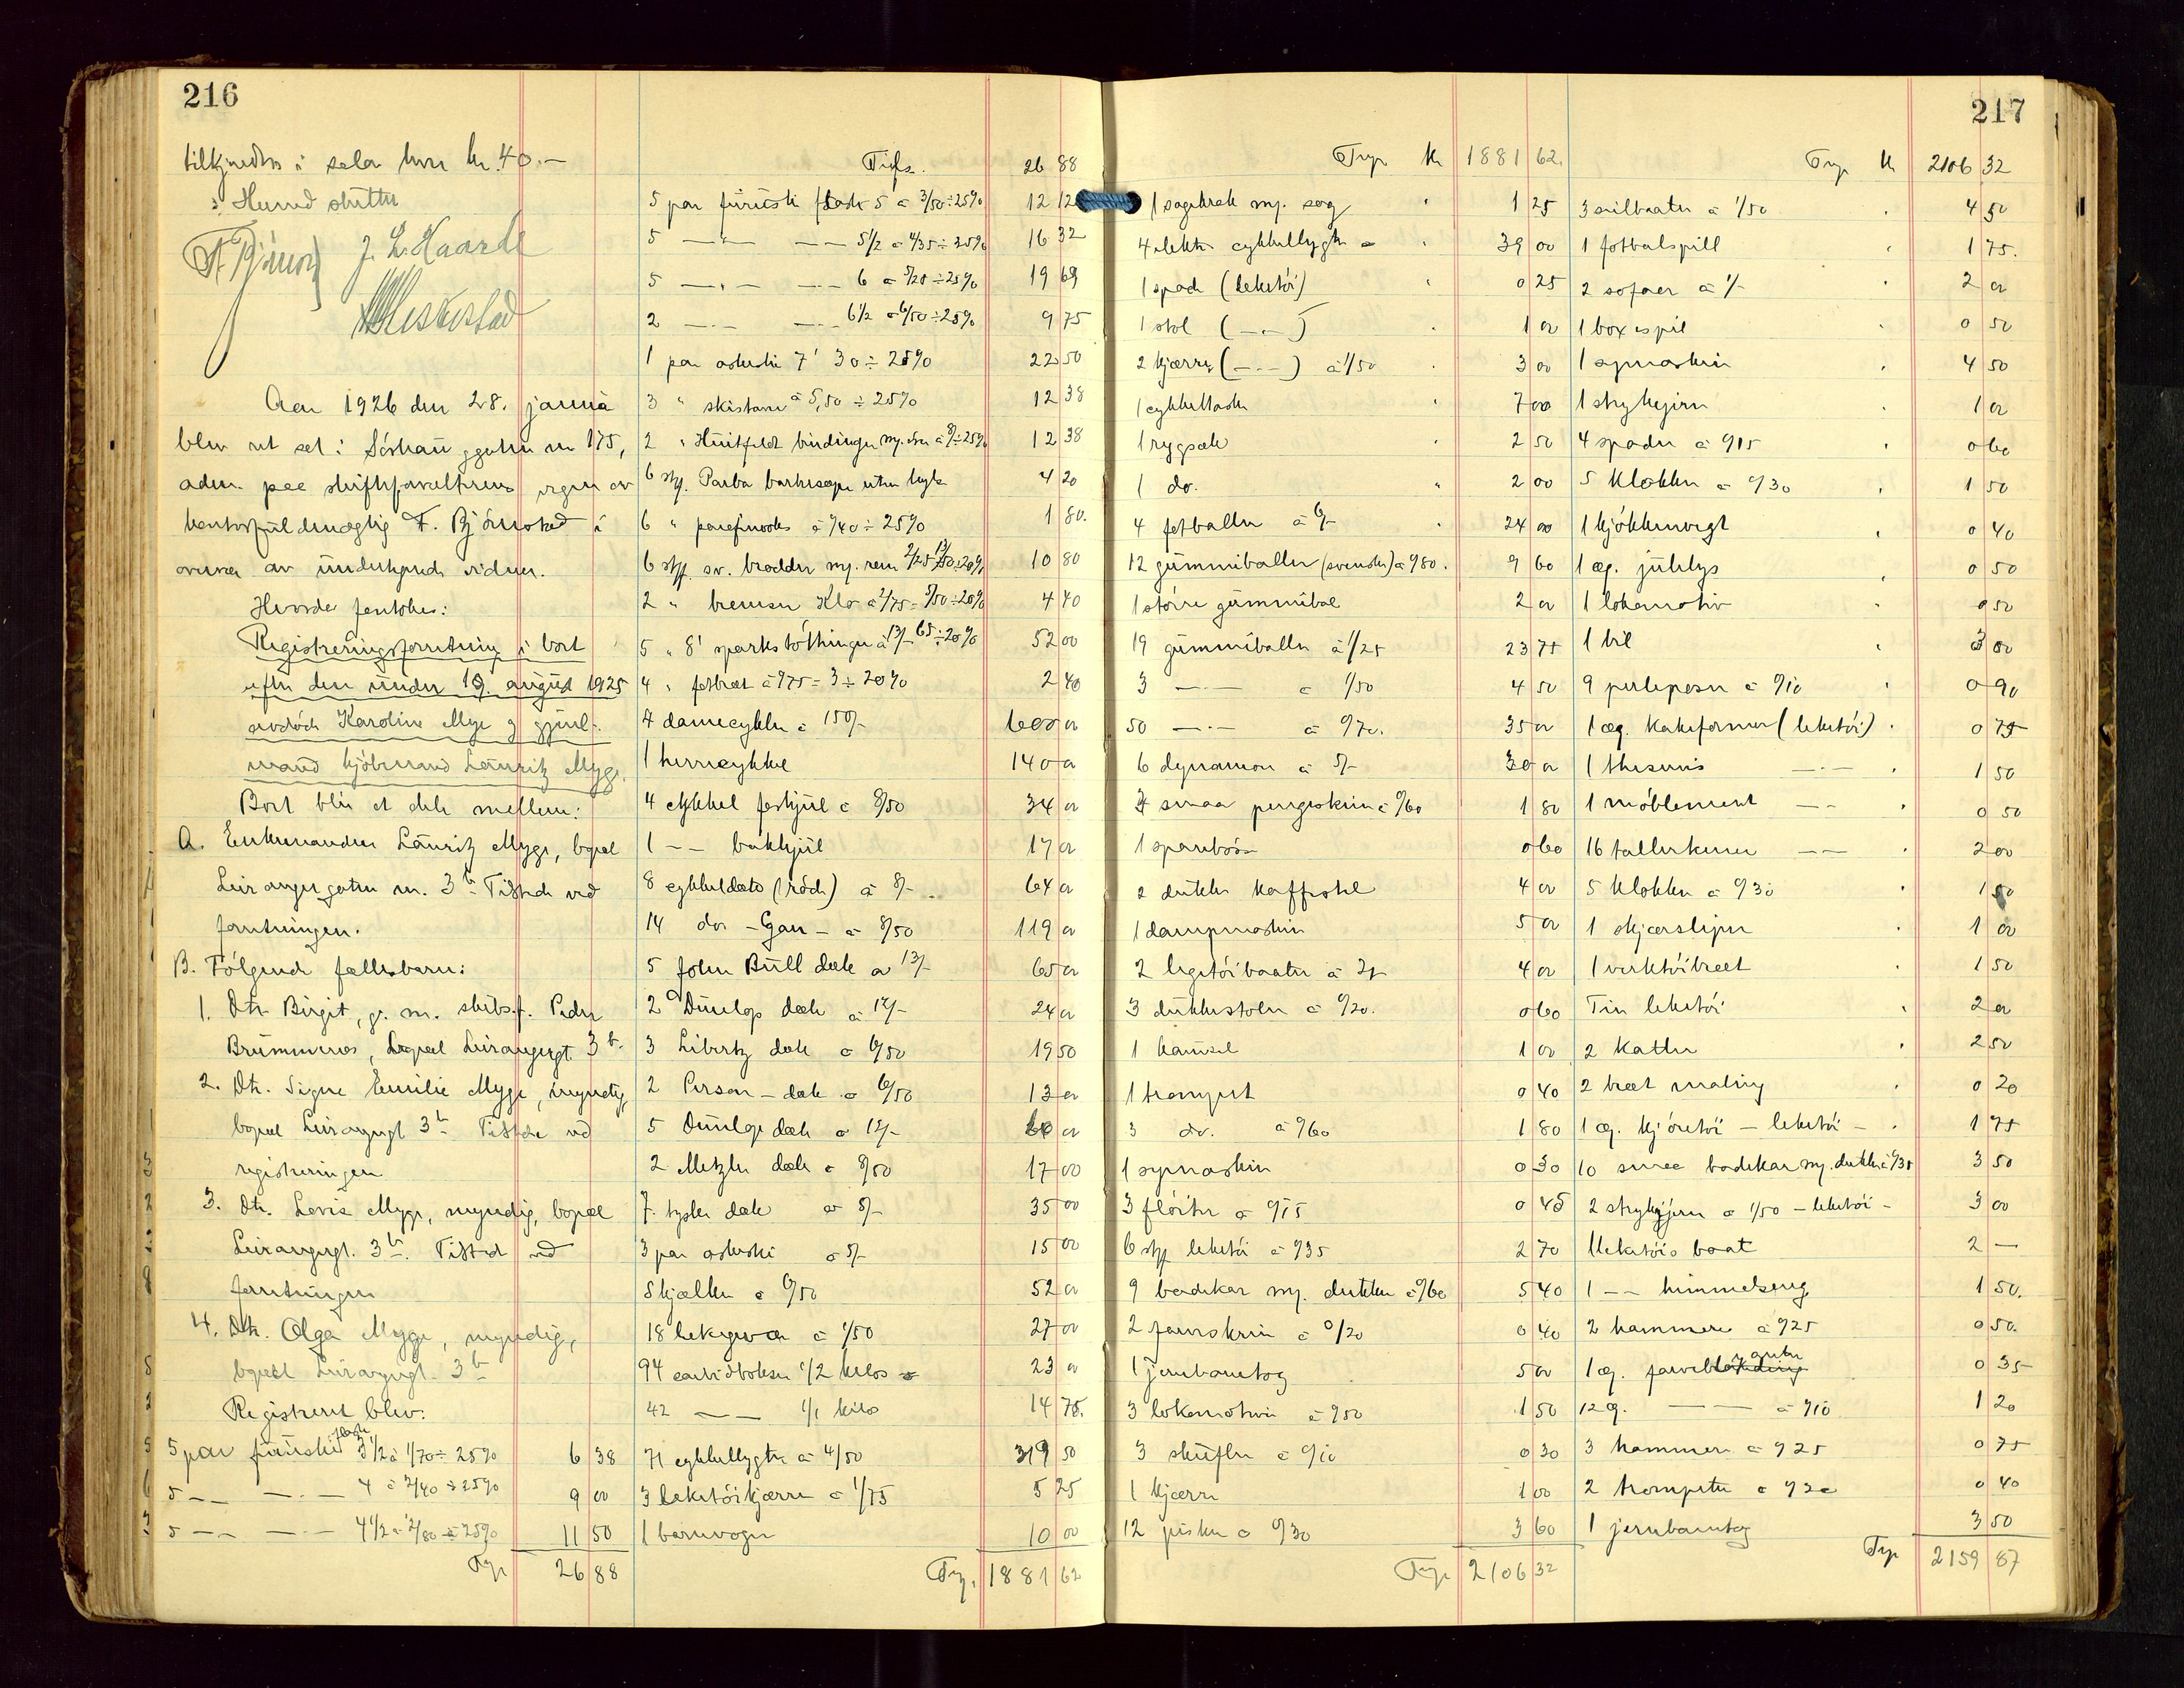 216
tilkjendtes i salær hver kr. 40.-
Hermed sluttet
F. Bjørnsted J. L. Haarde
Aar 1926 den 28. januar
blev ret sat i Sørhauggaten nr 175,
adm. paa skifteforvalterens vegne av
kontorfuldmægtig F. Bjørnsted i
overvær av underskrevne vidner.
Hvorda foretokes:
Registreringsforretning i boet
efter den under 19. august 1925
avdøde Karoline Myge og gjenl.
mand kjøbmand Lauritz Myge.
Boet blir at dele mellem:
A. Enkemanden Lauritz Myge, bopæl
Leirangergaten nr. 3 b Tilstede ved
forretningen.
B. Følgende fællesbarn:
1. Dtr. Birgit, g. m. skibsf. Peder
Brummenæs, bopæl Leirangergt. 3 b.
2. Dtr. Signe Emilie Myge, myndig,
bopæl Leirangergt 3 b Tilstede ved
registreringen
3. Dtr. Lovis Myge, myndig, bopæl
Leirangergt. 3 b. Tilstede ved
forretningen
4. Dtr. Olga Myge, myndig,
bopæl Leirangergt. 3 b
Registrert blev:
5 par furuski flade 3 1/2 à 1/70 ÷ 25% 6 38
5 -"- -"- 4 à 2/40 ÷ 25% 9 00
5 -"- -"- 4 1/2 à 2/80 ÷ 25% 11 50
Trp 26 88
Trfs. 26 88
5 par furuski flade 5 à 3/50 ÷ 25% 12 12
5 -"- -"- 5 1/2 à 4/35 ÷ 25% 16 32
5 -"- -"- 6 à 5/25 ÷ 25% 19 69
2 -"- -"- 6 1/2 à 6/50 ÷ 25% 9 75
1 par askeski 7' 30 ÷ 25% 22 50
3 " skistaver à 5,50 ÷ 25% 12 38
2 " Huitfeldt bindinger 12 38
6 stk. 4 20
6 " à 0/40 ÷ 25% 1 80.
6 stk. sv. brodder m. rem 10 80
2 " bremser Klo 4 40
5 " 8' sparkstøttinger 52 00
4 " fotbret à 0/75 = 3 ÷ 20% 2 40
4 damecykler à 150/- 600 00
1 herrecykkel 140 00
4 cykkel forhjul à 8/50 34 00
1 -"- bakhjul 17 00
8 cykkeldæk (røde) à 8/- 64 00
14 do - Gan - à 8/50 119 00
5 John Bull dæk à 13/- 65 00
2 Dunlop dæk à 12/- 24 00
3 Liberty dæk à 6/50 19 50
2 Person - dæk à 6/50 13 00
5 Dunlop dæk à 12/- 60 00
2 Metzler dæk à 8/50 17 00
7 tyske dæk à 5/- 35 00
3 par askeski à 5/- 15 00
8 kjælker à 6/50 52 00
18 à 1/50 27 00
94 carbidbokser 1/2 kilos 23 00
42 -"- 1/1 kilo 14 75.
71 cykkellygter à 4/50 319 50
3 leketøikjærrer à 1/75 5 25
1 barnevogn 10 00
Trp. 1881 62
217
Trp Kr 1881 62.
1 sagekrak m. sag 1 25
4 elektr. cykkellygter 39 00
1 spade (leketøi) 0 25
1 stol (-"-) 1 00
2 kjærrer (-"-) à 1/50 3 00
1 cykkeltaske 7 00
1 rygsæk 2 50
1 do. 2 00
4 fotballer à 6/- 24 00
12 gummiballer (svenske) à 0/80. 9 60
1 større gummibal 2 00
19 gummiballer à 1/25 23 75
3 -"- à 1/50 4 50
50 -"- à 0/70. 35 00
6 dynamoer à 5/- 30 00
3 smaa pengeskrin à 0/60 1 80
1 sparebøsse 0 60
2 dukke kaffestel 4 00
1 dampmaskin 5 00
2 legetøibaater à 2/- 4 00
3 dukkestoler à 0/20. 0 60
1 karusel 1 00
1 trompet 0 40
3 do. à 0/60 1 80
1 symaskin 0 30
3 fløiter à 0/15 0 45
6 stk leketøi à 0/35 2 70
9 badekar m. dukker à 0/60 5 40
2 farveskrin à 0/20 0 40
1 jernbanetog 5 00
3 lokomotiver à 0/50 1 50
3 skuffer à 0/10 0 30
1 kjærre 1 00
12 pisker à 0/30 3 60
Trp 2106 32
Trp Kr 2106 32
3 seilbaater à 1/50 4 50
1 fotbalspill 1 75.
2 sofaer à 1/- 2 00
1 boxespil 0 50
1 symaskin 4 50
1 strykejern 1 00
4 spader à 0/15 0 60
5 klokker à 0/30 1 50
1 kjøkkenvegt 0 40
1 æs. julelys 0 50
1 lokomotiv 0 50
1 bil 3 00
9 perleposer à 0/10 0 90
1 æs. kakeformer (leketøi) 0 75
1 theservis -"- 1 50
1 møblement -"- 0 50
16 tallerkener -"- 2 00
5 klokker à 0/30 1 50
1 skjærsliper 1 00
1 verktøibræt 1 50
Tin leketøi 2 00
2 katter 2 50
2 bræt maling 0 20
1 æs. kjøretøi - leketøi - 1 75
10 smaa badekar m. dukke à 0/35 3 50
2 strykejern à 1/50 - leketøi - 3 00
1 leketøis baat 2 -
1 -"- himmelseng 1 50.
2 hammere à 0/25 0 50.
1 æs. 0 35
12 æ. -"- à 0/10 1 20
3 hammere à 0/25 0 75
2 trompeter à 0/20 0 40
1 jernbanetog 3 50
Trp 2159 87